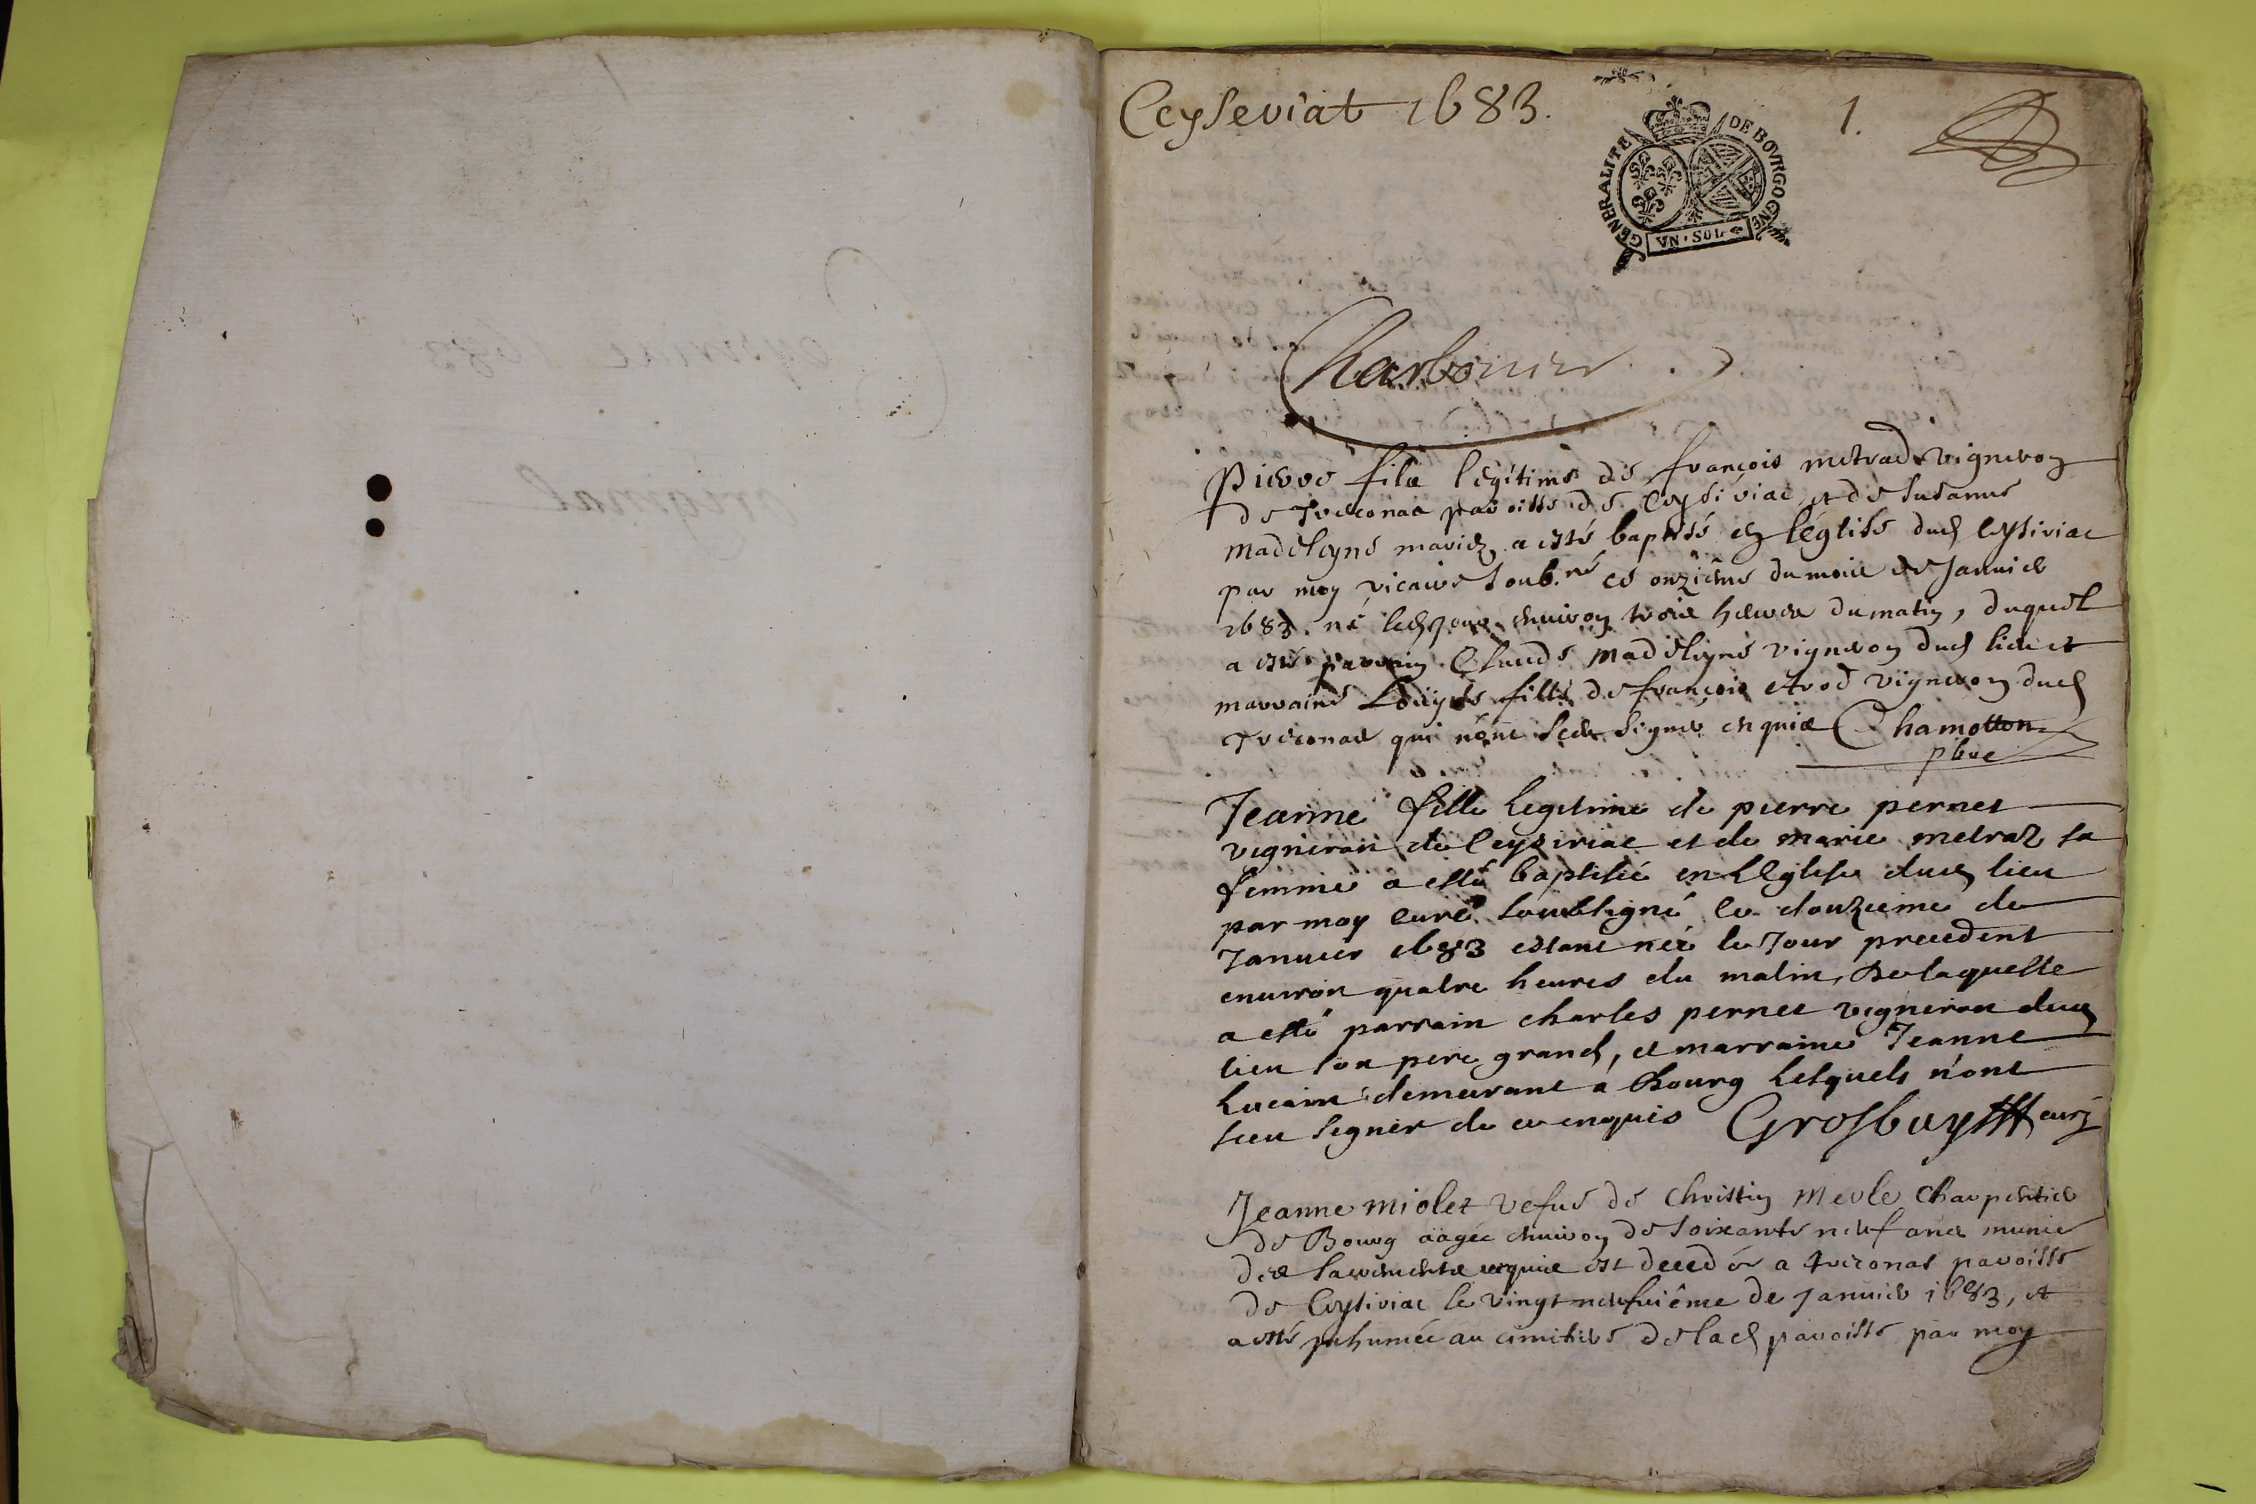 Ceyseviat 1683.
1.
GENERALITE DE BOVRGOGNE
VN·SOL
Charbonier
Pierre filz legitime de françois metrad vigneron
de Treconas parroisse de Ceysiriac, et de susanne
madeleyne mariez a esté baptisé en léglise dud Ceysiriac
par moy vicaire soub.né ce onziême du mois de Januier
1683. né led Jour enuiron trois heures du matin, duquel
a esté parrain Claude madeleyne vigneron dud lieu et
marraine Loüyse fille de françois vigneron dud
Treconas qui n'ont sceu signer enquis Chamotton
pbre
Jeanne fille legitime de pierre pernet
vigneron de Ceysiriac et de marie metraz sa
femme a esté baptisée en L'Eglise dud lieu
par moy curé soubsigné le douzieme de
Januier 1683 estant née le Jour precedent
enuiron quatre heures du matin, de laquelle
a esté parrain charles pernet vigneron dud
lieu son pere grand, et marraine Jeanne
demeurant à Bourg lesquels n'ont
sceu signer de ce enquis Grosbuy curé
Jeanne miolet vefue de Christin Merle Charpentier
de Bourg aagée enuiron de soixante neuf ans munie
des sacrements est decedée a treconas parroisse
de Ceysiriac le vingt neufuiême de Januier 1683, et
a esté Inhumée au cimitiere de lad parroisse par moy